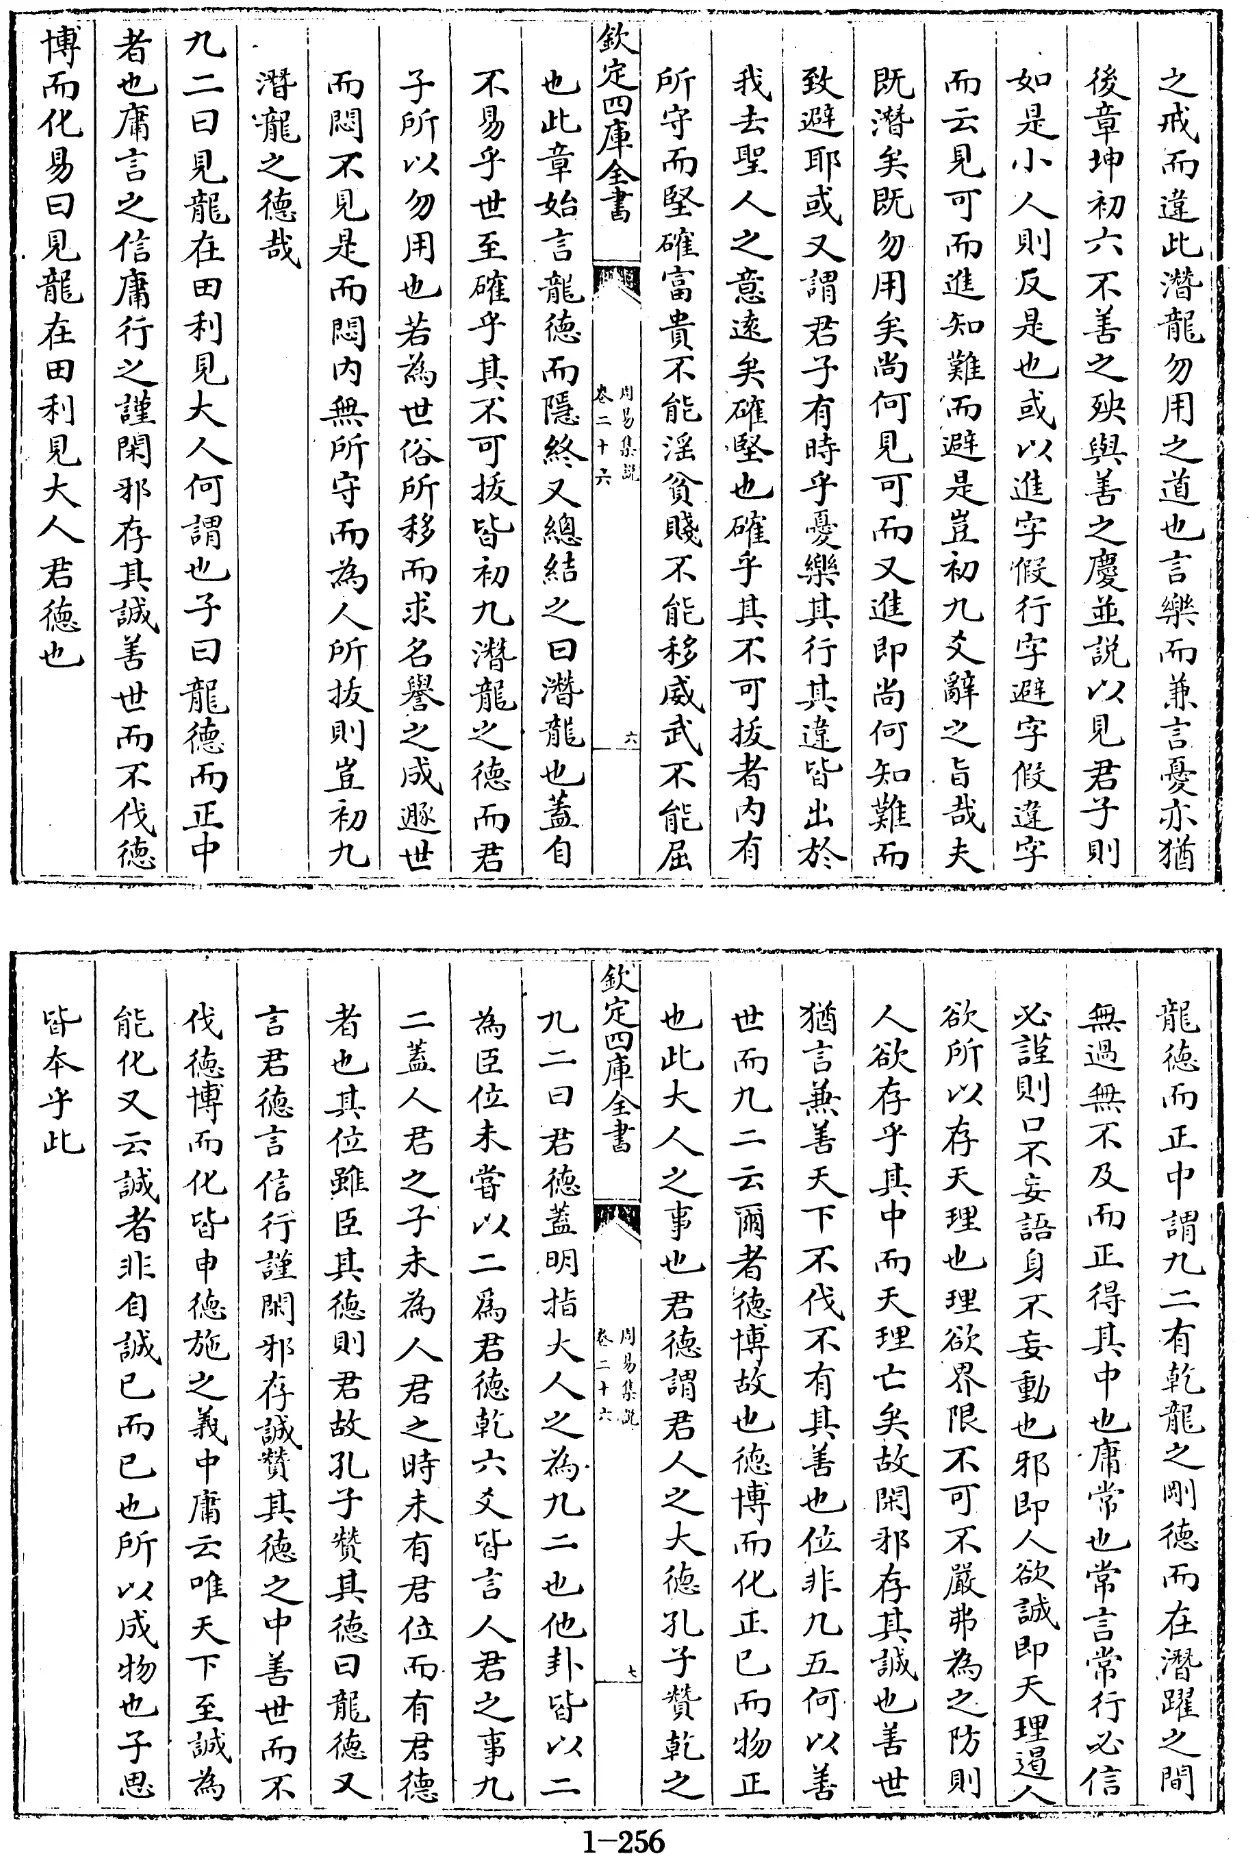 之戒而違此潛龍勿用之道也言樂而兼言憂亦猶
後章坤初六不善之殃與善之慶並説以見君子則
如是小人則反是也或以進字假行字避字假違字
而云見可而進知難而避是豈初九爻辭之旨哉夫
既潛矣既勿用矣尚何見可而又進即尚何知難而
致避耶或又謂君子有時乎憂樂其行其違皆出於
我去聖人之意遠矣確堅也確乎其不可拔者内有
所守而堅確富貴不能淫貧賤不能移威武不能屈
欽定四庫全書
周易集説
卷二十六
六
也此章始言龍德而隠終又總結之曰潛龍也蓋自
不易乎世至確乎其不可拔皆初九潛龍之德而君
子所以勿用也若為世俗所移而求名譽之成遯世
而悶不見是而悶内無所守而為人所拔則豈初九
潛龍之德哉
九二曰見龍在田利見大人何謂也子曰龍德而正中
者也庸言之信庸行之謹閑邪存其誠善世而不伐德
博而化易曰見龍在田利見大人君德也
龍德而正中謂九二有乾龍之剛德而在潛躍之間
無過無不及而正得其中也庸常也常言常行必信
必謹則口不妄語身不妄動也邪即人欲誠即天理遏人
欲所以存天理也理欲界限不可不嚴弗為之防則
人欲存乎其中而天理亡矣故閑邪存其誠也善世
猶言兼善天下不伐不有其善也位非九五何以善
世而九二云爾者德博故也德博而化正已而物正
也此大人之事也君德謂君人之大德孔子贊乾之
欽定四庫全書
周易集説
卷二十六
七
九二曰君德蓋明指大人之為九二也他卦皆以二
為臣位未嘗以二爲君德乾六爻皆言人君之事九
二蓋人君之子未為人君之時未有君位而有君德
者也其位雖臣其德則君故孔子贊其德曰龍德又
言君德言信行謹閑邪存誠贊其德之中善世而不
伐德博而化皆申德施之義中庸云唯天下至誠為
能化又云誠者非自誠已而已也所以成物也子思
皆本乎此
1-256